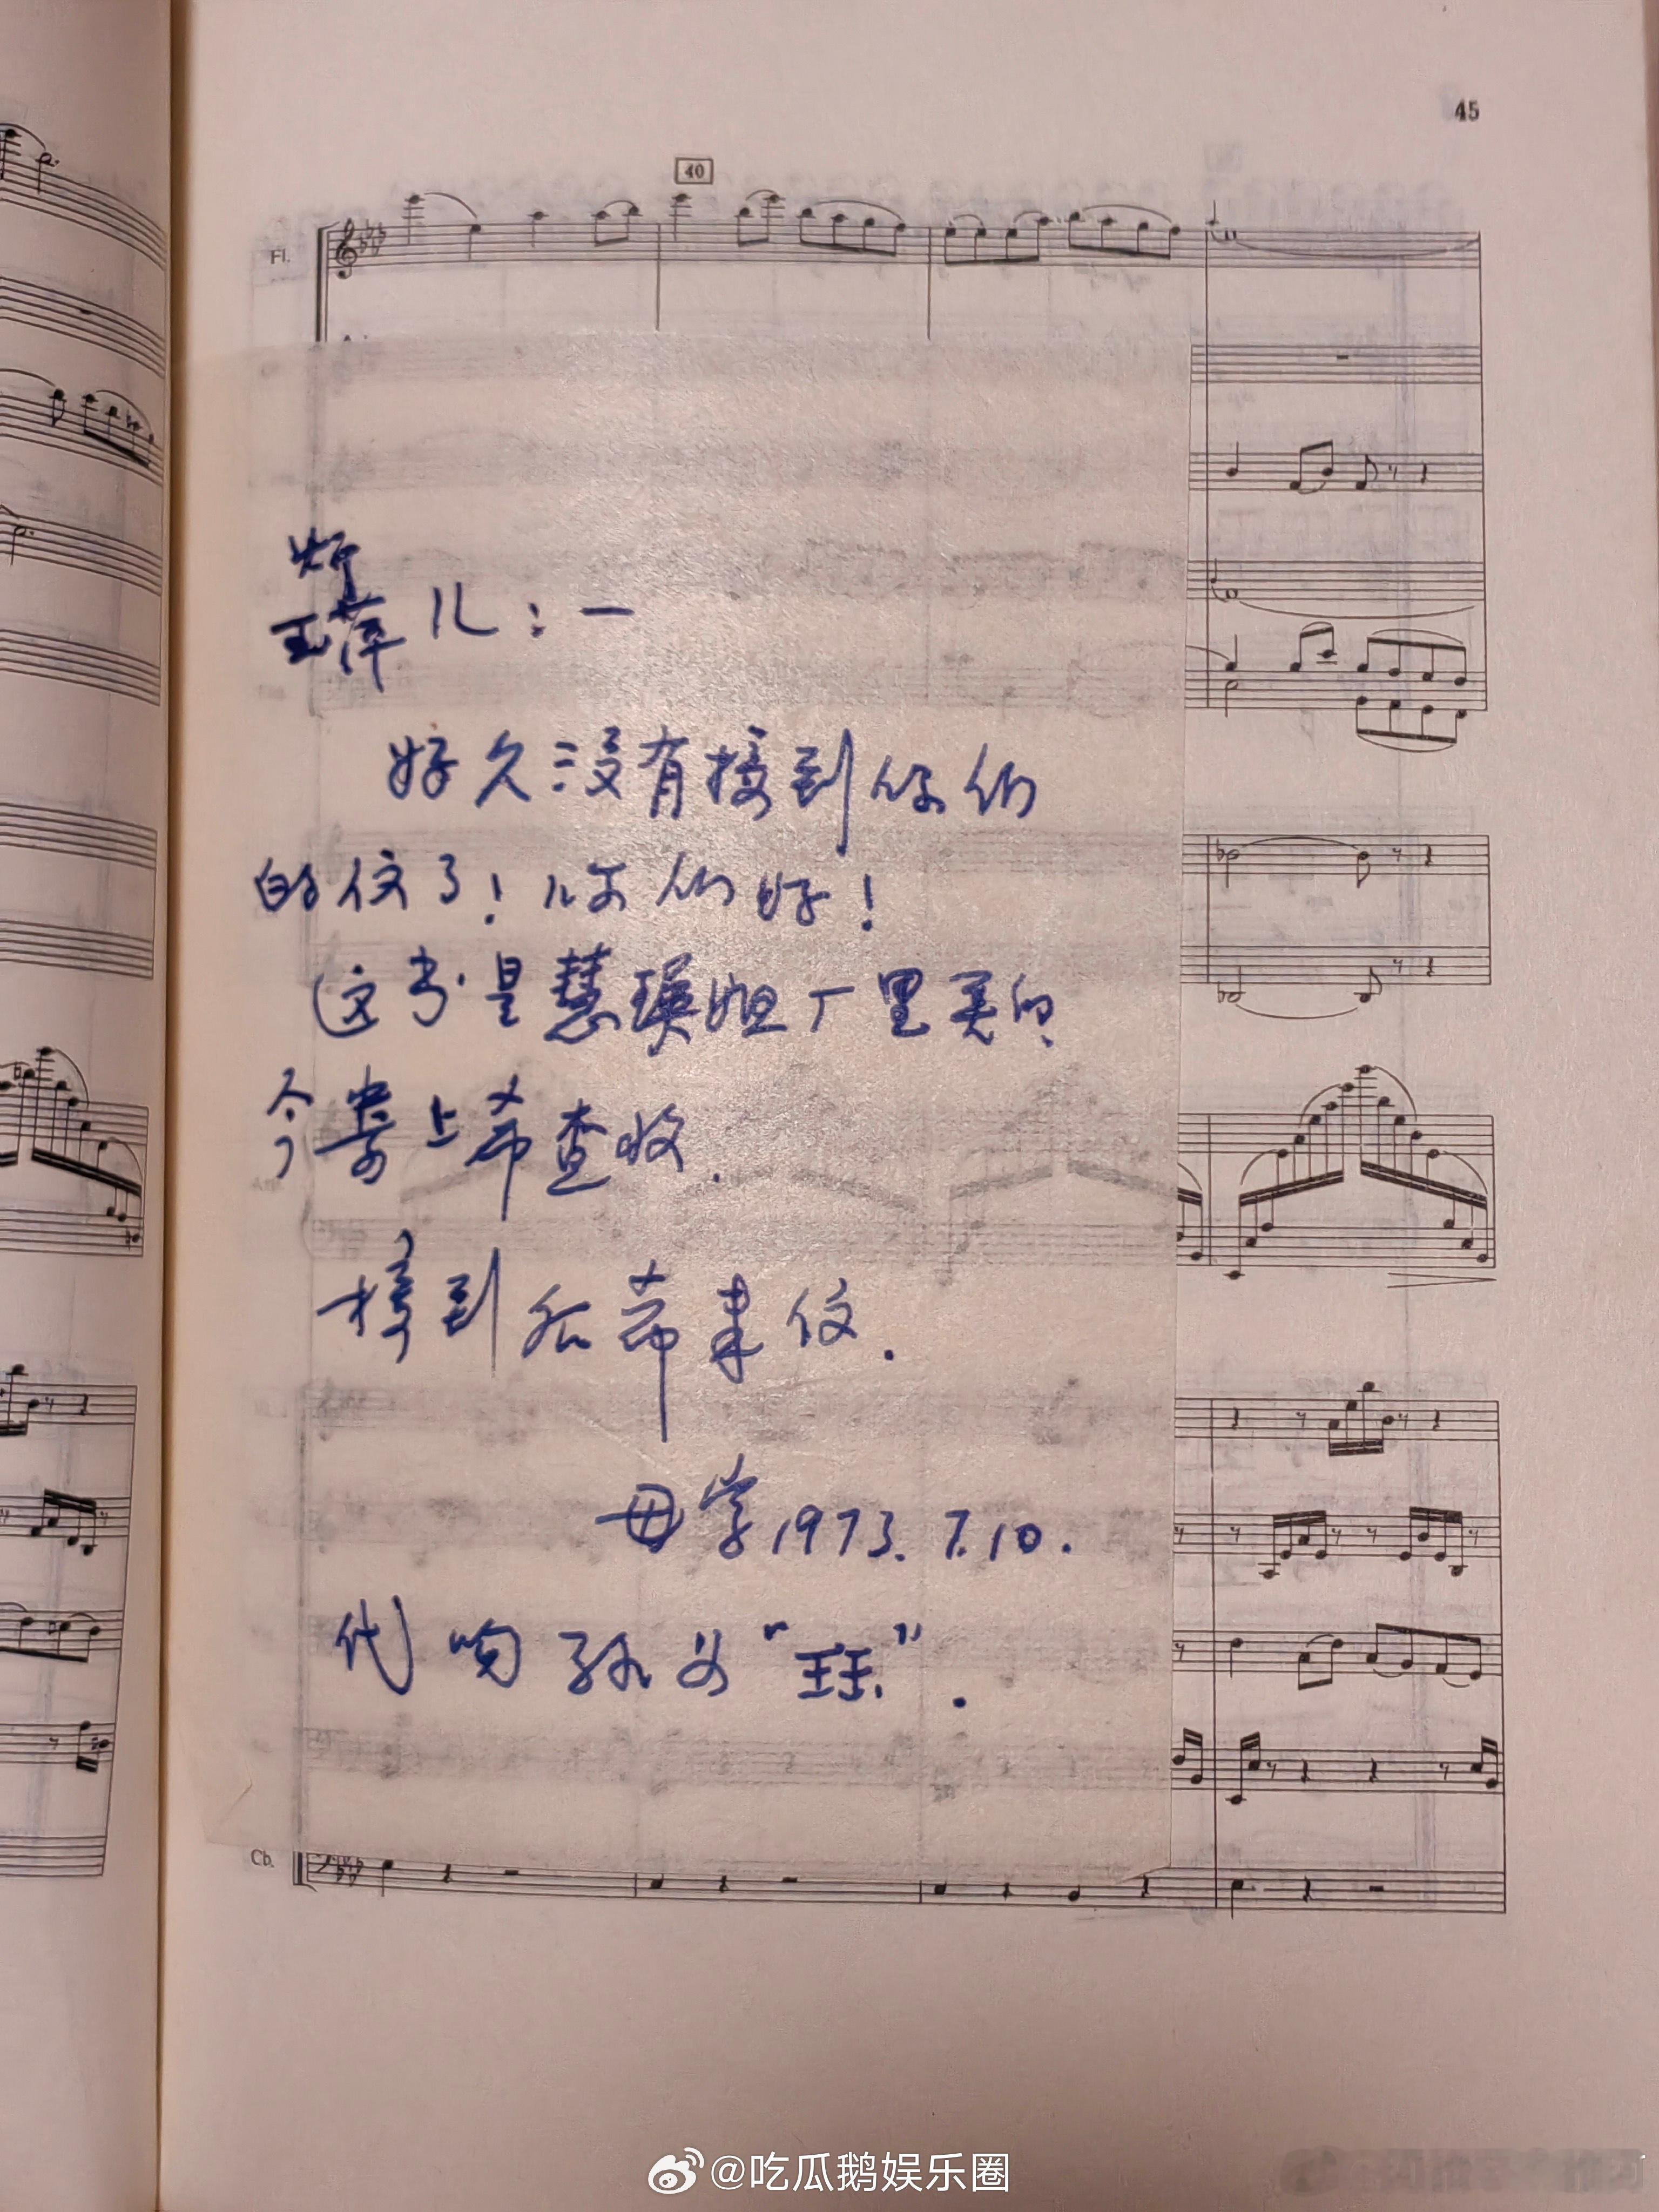 45
40
Fl.
炘
玉萍 儿：一
好久没有接到你们
的信了！你们好！
这书是慧瑛姐厂里买的
今寄上希查收.
接到后希来信.
母字1973.7.10.
代吻孙女“珏”.
Cb.
@吃瓜鹅娱乐圈